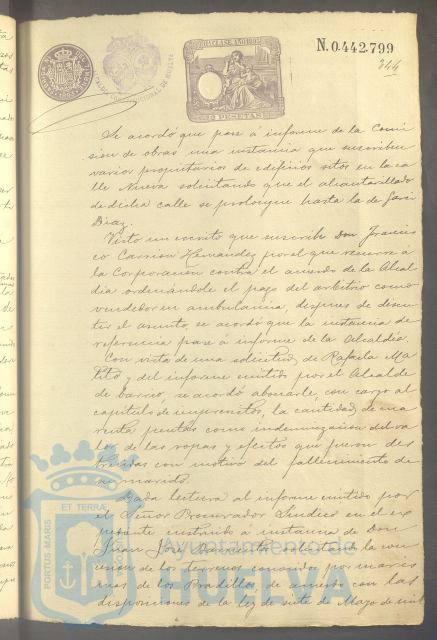 N.0.442.799
244
2 PESETAS
Se acordó que pase á informe de la Comi
sion de obras una instancia que suscriben
varios propietarios de edificios sitos en la ca
lle Nueva solicitando que el alcantarillado
de dicha calle se prolongue hasta la de Garci
Diaz.
Visto un escrito que suscribe Don Francis
co Carrion Hernandez por el que recurre á
la Corporacion contra el acuerdo de la Alcal
dia ordenándole el pago del arbitrio como
vendedor en ambulancia, despues de discu
tir el asunto, se acordó que la instancia de
referencia pase á informe de la Alcaldia.
Con vista de una solicitud de Rafaela Ma
y del informe emitido por el Alcalde
de barrio, se acordó abonarle, con cargo al
capitulo de imprevistos, la cantidad de cua
renta pesetas como indemnizacion del va
lor de las ropas y efectos que fueron des
truidas con motivo del fallecimiento de
su marido.
Dada lectura al informe emitido por
el Señor Procurador Sindico en el ex
pediente instruido á instancia de Don
Juan José Barrientos solicitando la con
cesion de los terrenos conocidos por maris
mas de los Pradillos, de acuerdo con las
disposiciones de la ley de siete de Mayo de mil
PORTUS MARIS
ET TERRAE
Ayuntamiento de
HUELVA